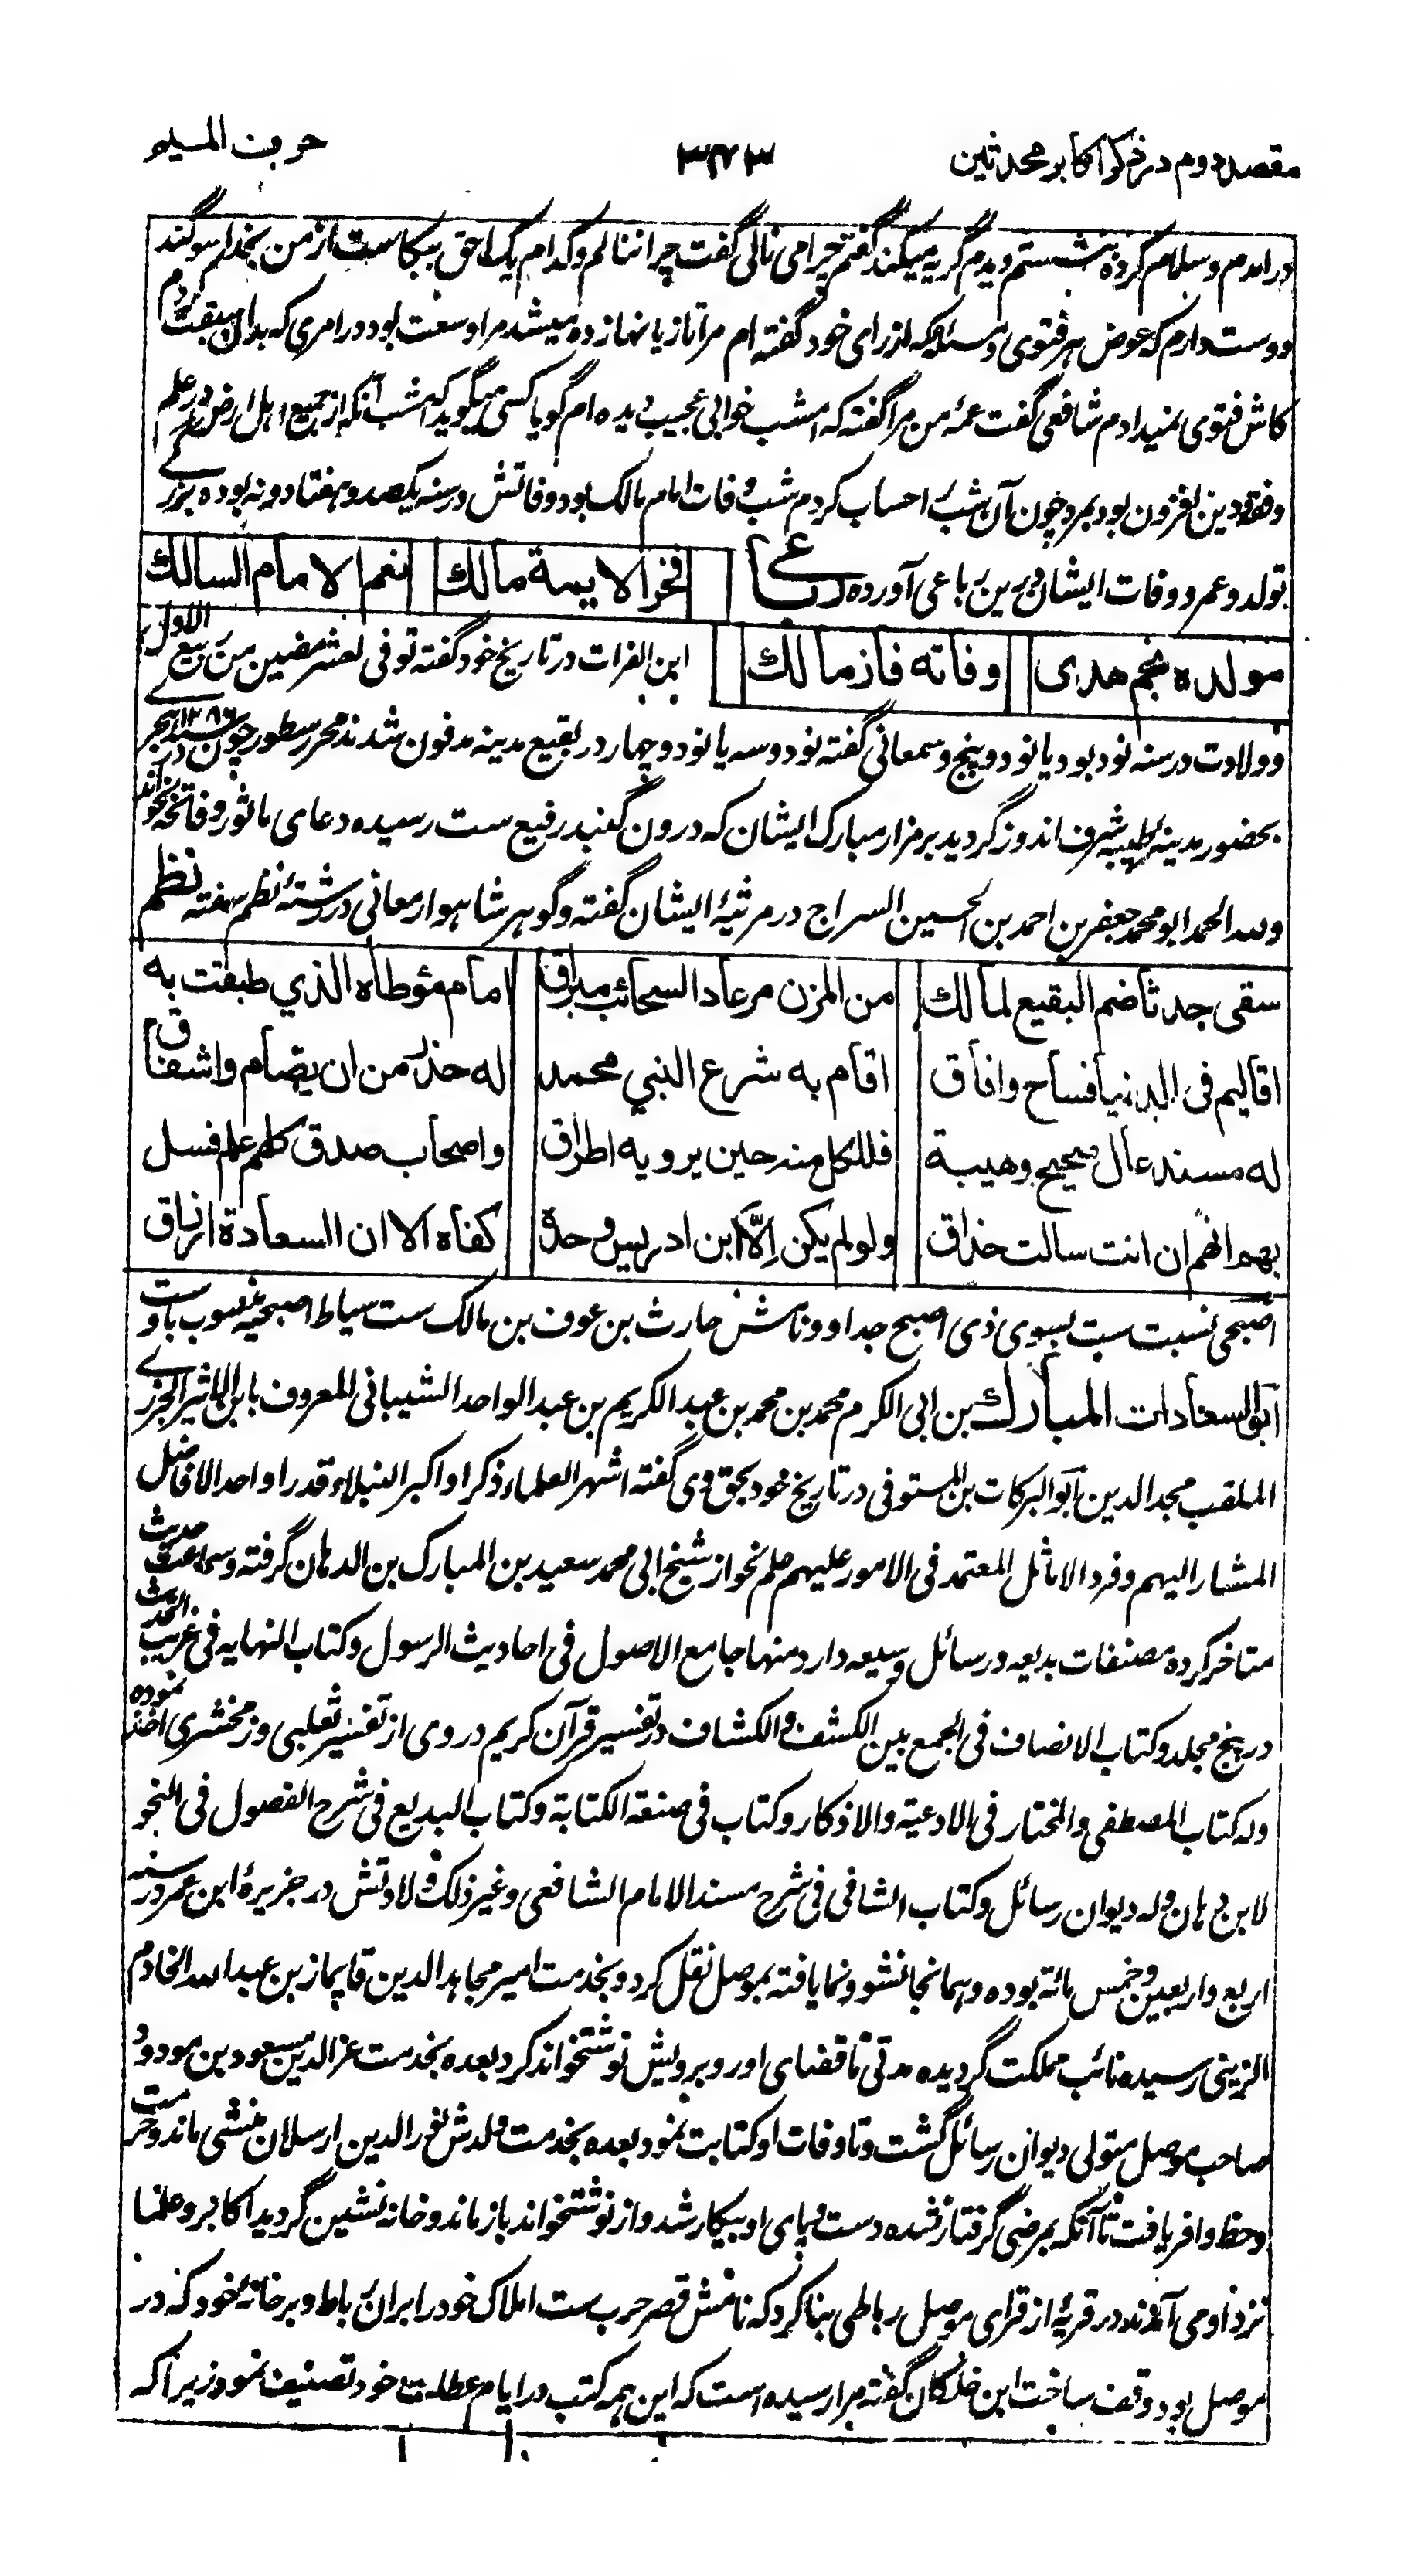 مقصد دوم در ذکر اکابر محدثین
۳۷۳
حرف المیم
درآمدم و سلام کرده بنشستم دیدم گریه میکند گفتم چرا می نالی گفت چرا ننالم و کدام یک احق ببکاست از من بخدا سوگند
دوست دارم که عوض هر فتوی و مسئله که از رای خود گفته ام مرا تازیانها زده میشد مرا وسعت بود در امری که بدان سبقت کردم
کاش فتوی نمیدادم شافعی گفت عمهٔ من مرا گفته که امشب خوابی عجیب دیده ام گویا کسی میگوید که امشب آنکه از جمیع اهل ارض در علم
وفقه و دین افزون بود بمرد چون آن شب را حساب کردم شب وفات امام مالک بود و وفاتش در سنه یکصد و هفتاد و نه بوده بزرگے
تولد و عمر و وفات ایشان درین رباعی آورده رباعے
فخر الایمة مالك
نعم الامام السالك
مولده نجم هدی
وفاته فاز مالك
ابن الفرات در تاریخ خود گفته توفی لعشر مضین من ربیع الاول
و ولادت در سنه نود بود یا نود و پنج و سمعانی گفته نود و سه یا نود و چهار در بقیع مدینه مدفون شدند محرر سطور چون در سنه ۱۲۸۶ هجری
بحضور مدینهٔ طیبه شرف اندوز گردید بر مزار مبارک ایشان که درون گنبد رفیع ست رسیده دعای ماثور و فاتحه بخواند
ولله الحمد ابو محمد جعفر بن احمد بن الحسین السراج در مرثیهٔ ایشان گفته و گوهر شاهوار معانی در رشتهٔ نظم سفته نظم
سقی جدثا ضم البقیع لمالك
من المزن مرعاد السحائب مبراق
امام مؤطاه الذي طبقت به
اقالیم فی الدنیا فساح وآفاق
اقام به شرع النبي محمد
له حذر من ان یضام واشفاق
له مسند عال صحیح وهیبة
فللکل منه حین یرویه اطراق
واصحاب صدق کلهم علم فسل
بهم انهم ان انت سالت حذاق
ولو لم یکن اِلّا ابن ادریس وحده
کفاه الا ان السعادة ارزاق
اصبحی نسبت ست بسوی ذی اصبح جد او و نامش حارث بن عوف بن مالک ست سیاط اصبحیه منسوب باوست
ابو السعادات المبارك بن ابی الکرم محمد بن محمد بن عبد الکریم بن عبد الواحد الشیبانی المعروف بابن الاثیر الجزرے
الملقب مجد الدین ابو البرکات بن المستوفی در تاریخ خود بحق وی گفته اشهر العلماء ذکرا و اکبر النبلاء قدرا و احد الافاضل
المشار الیهم و فرد الاماثل المعتمد فی الامور علیهم علم نحو از شیخ ابی محمد سعید بن المبارک بن الدهان گرفته و سماعت حدیث
متاخر کرده مصنفات بدیعه و رسائل وسیعه دارد منها جامع الاصول فی احادیث الرسول و کتاب النهایه فی غریب الحدیث
در پنج مجلد و کتاب الانصاف فی الجمع بین الکشف والکشاف در تفسیر قرآن کریم در وی از تفسیر ثعلبی و زمخشری اخذ نموده
وله کتاب المصطفی والمختار فی الادعیة والاذکار و کتاب فی صنعة الکتابة و کتاب البدیع فی شرح الفصول فی النحو
لابن دهان وله دیوان رسائل و کتاب الشافی فی شرح مسند الامام الشافعی و غیر ذلک ولادتش در جزیرهٔ ابن عمر در سنه
اربع و اربعین و خمس مائة بوده و همانجا نشو و نما یافته بموصل نقل کرد و بخدمت امیر مجاهد الدین قایماز بن عبد الله الخادم
الزینی رسیده نائب مملکت گردیده مدتی تا قضای او روبرویش نوشتخواند کرد بعده بخدمت عز الدین مسعود بن مودود
صاحب موصل متولی دیوان رسائل گشت و تا وفات او کتابت نمود بعده بخدمت ولدش نور الدین ارسلان منشی ماند و حرمت
و حظ وافر یافت تا آنکه بمرضی گرفتار شده دست و پای او بیکار شد و از نوشتخواند باز ماند و خانه نشین گردید اکابر و علما
نزد او می آمدند در قریهٔ از قرای موصل رباطی بنا کرد که نامش قصر حرب ست املاک خود را بران رباط و بر خانهٔ خود که در
موصل بود وقف ساخت ابن خلکان گفته مرا رسیده است که این همه کتب در ایام عطلت خود تصنیف نمود زیرا که